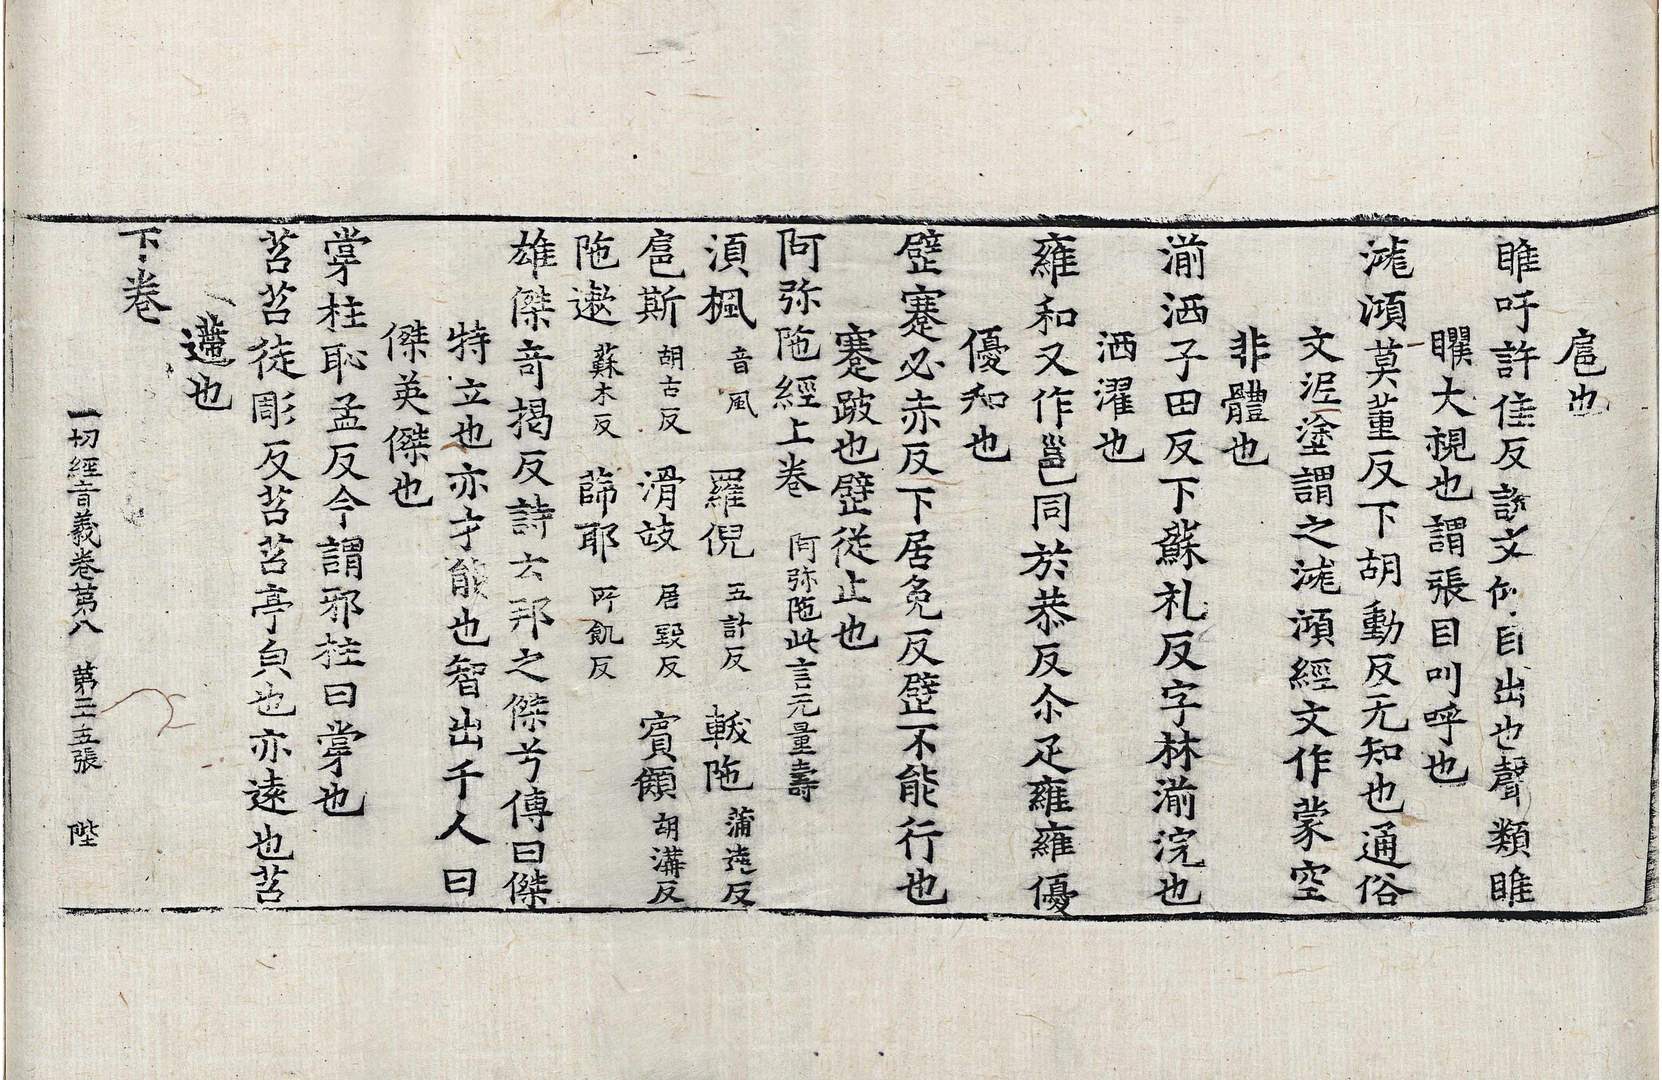 扈也
睢吁許隹反說文仰目出也聲類睢
矘大視也謂張目叫呼也
濛澒莫董反下胡動反无知也通俗
文泥塗謂之濛澒經文作蒙空
非體也
湔洒子田反下蘇礼反字林湔浣也
洒濯也
雍和又作邕同於恭反尒疋雍雍優
優和也
躄蹇必赤反下居免反躄不能行也
蹇跛也躄從止也
阿弥陁經上卷 阿弥陁此言无量壽
湏楓 音風 羅倪 五計反 軷陁 蒲達反
扈斯 胡古反 滑攱 居毀反 賔𩓥 胡溝反
陁遬 蘇木反 蒒耶 所飢反
雄傑竒揭反詩云邦之傑兮傳曰傑
特立也亦才能也智出千人曰
傑英傑也
牚柱恥孟反今謂邪柱曰牚也
苕苕徒彫反苕苕亭皃也亦遠也苕
遰也
下卷
一切經音義卷苐八 苐三五張 陛